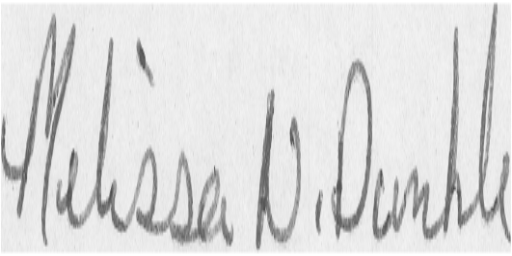 Melissa D. Dunkle